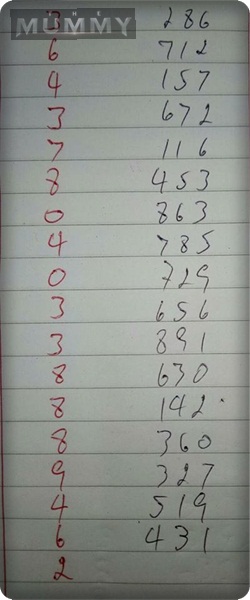 THE
MUMMY
3 286
6 712
4 157
3 672
7 116
8 453
0 863
4 785
0 729
3 656
3 891
8 630
8 142
8 360
9 327
4 519
6 431
2